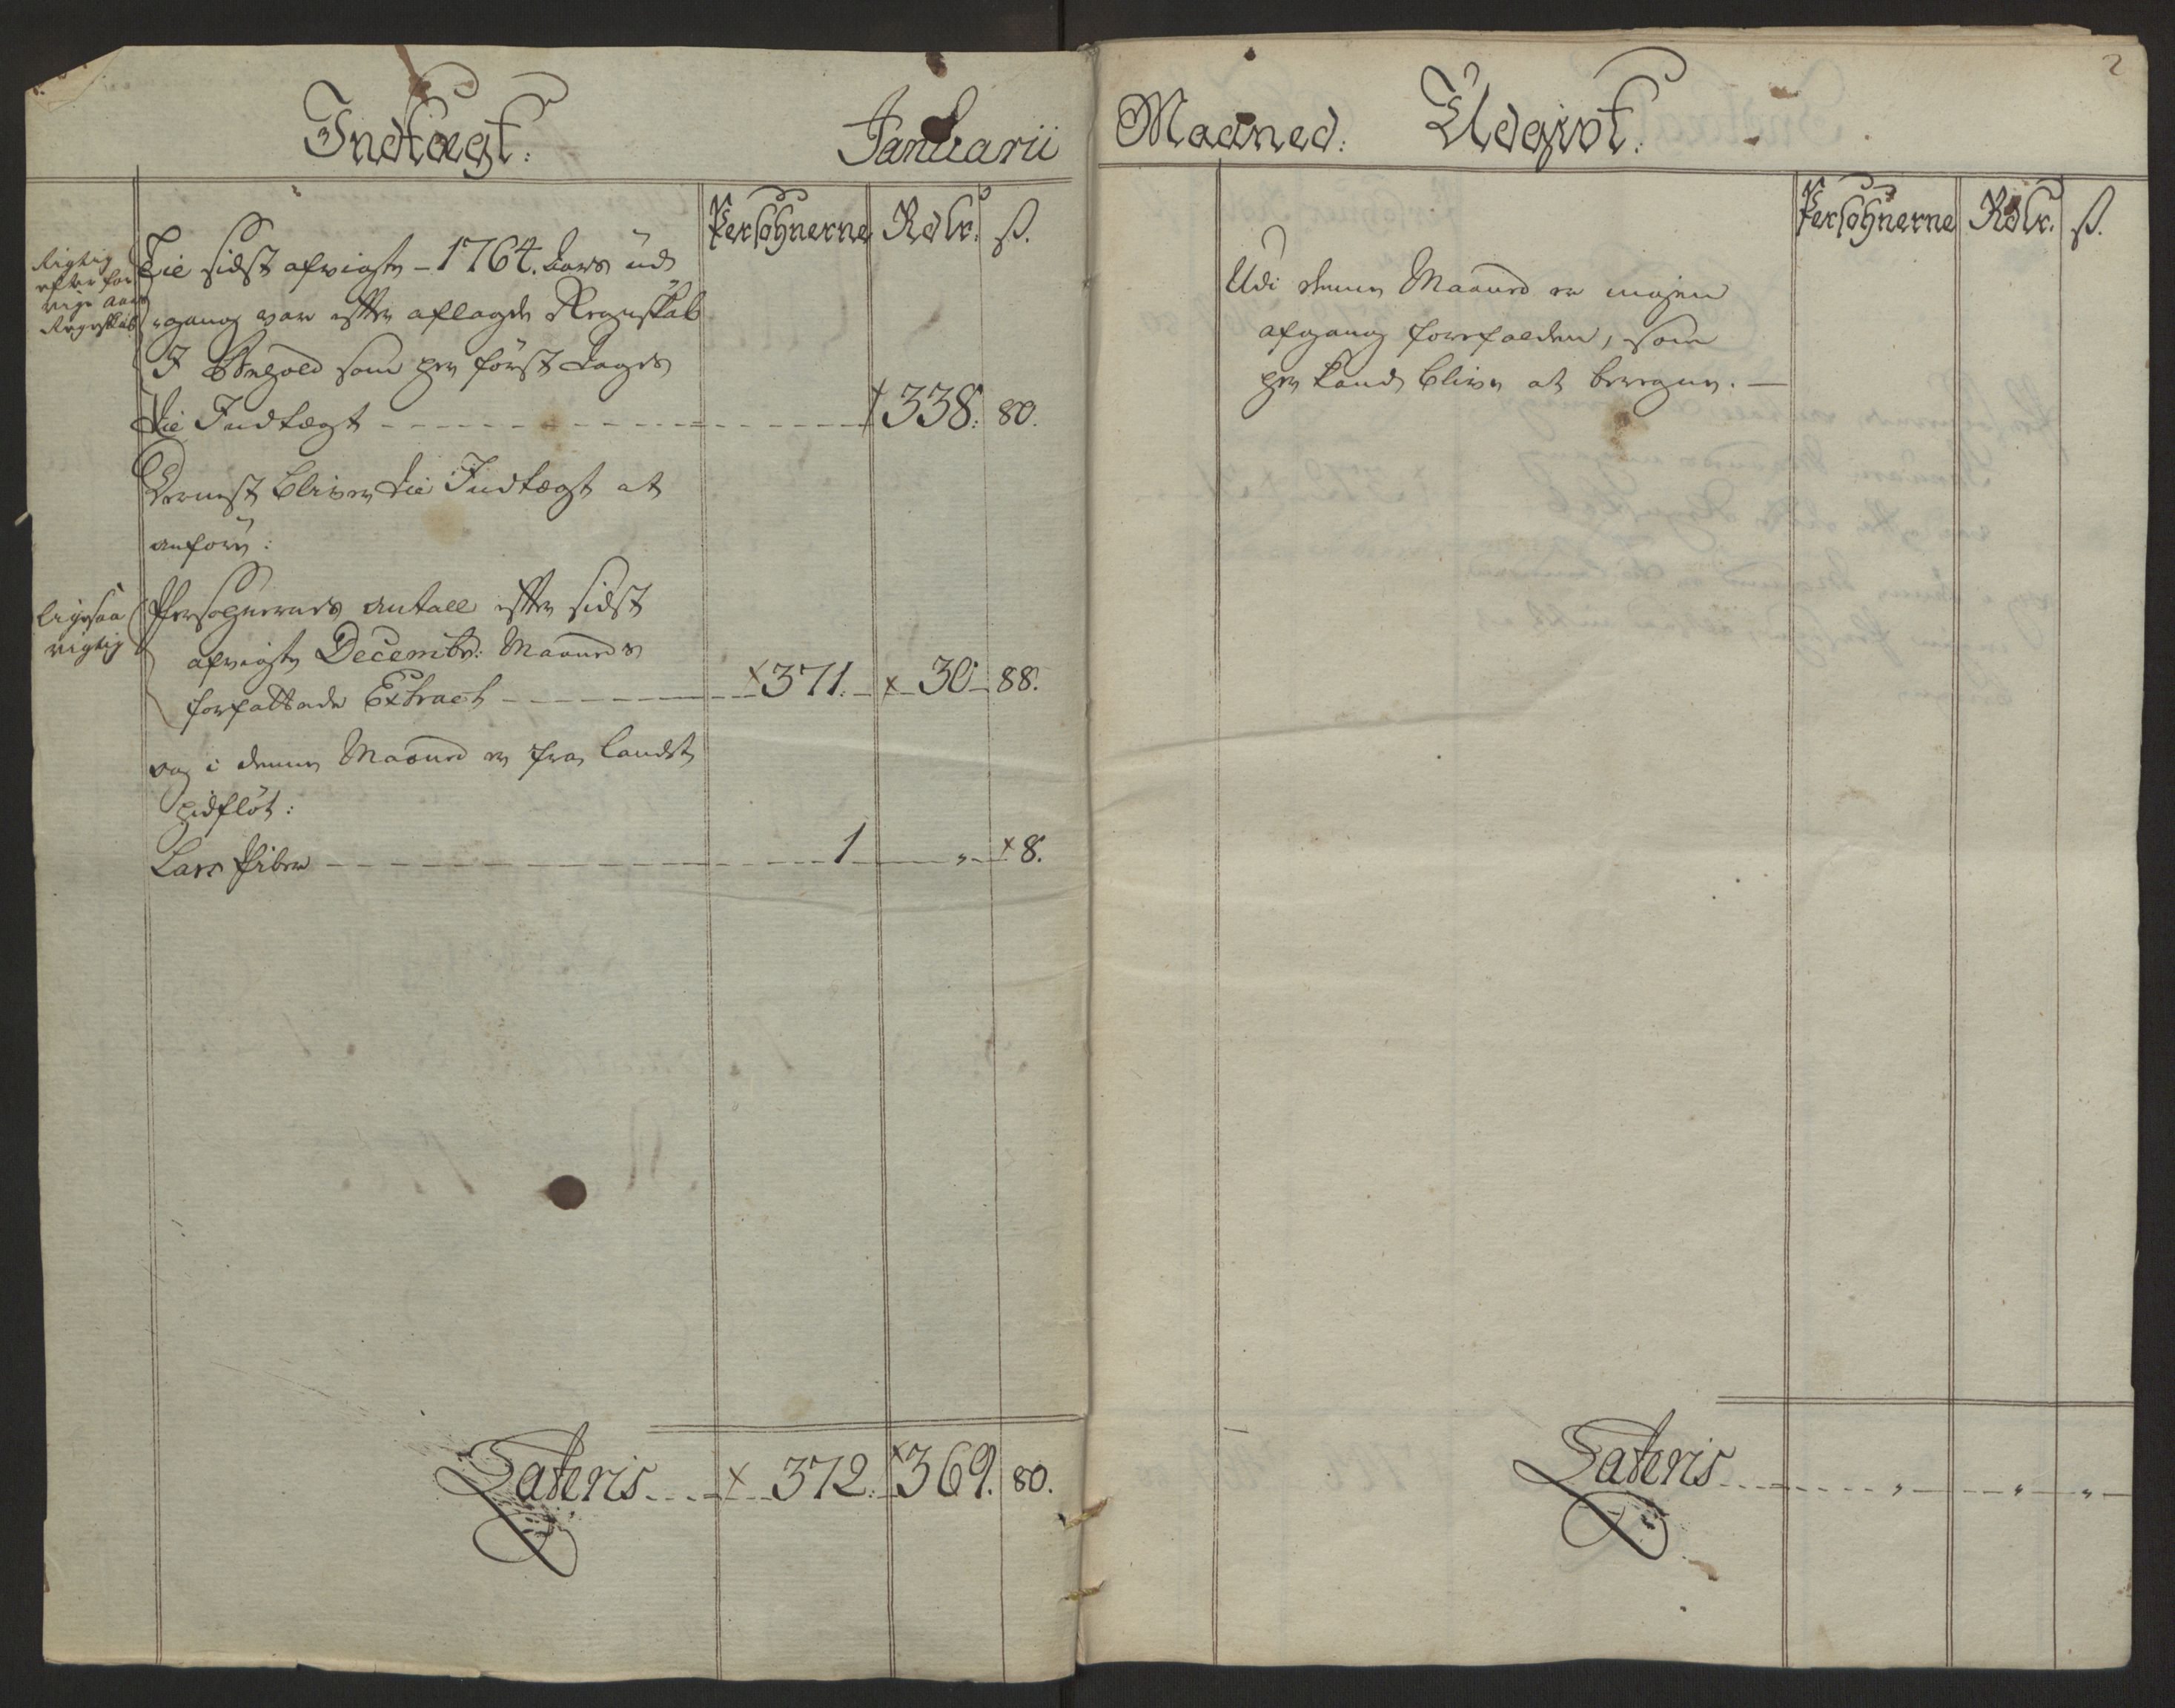 Indtægt. Januarii
Persohnerne Rdlr. ß.
Rigtig
efter for
rige Aars
Regnskab
Til sidst afvigte 1764. Aars ud
gang var efter aflagde Regnskab
I Behold som her først tages
til Indtægt 338. 80.
Dernest bliver til Indtægt at
anføre:
ligesaa
rigtig
Persohnernes antall efter sidst
afvigte Decembr: Maaneds
forfattede Extract 371. 30 88.
og i denne Maaned er fra landet
hidfløt:
Lars Piber 1 " 8.
Lateris 372. 369. 80.
2
Maaned. Udgivt.
Persohnerne Rdlr. ß.
Udi denne Maaned er ingen
afgang forefalden, som
her kand blive at beregne.
Lateris " " "